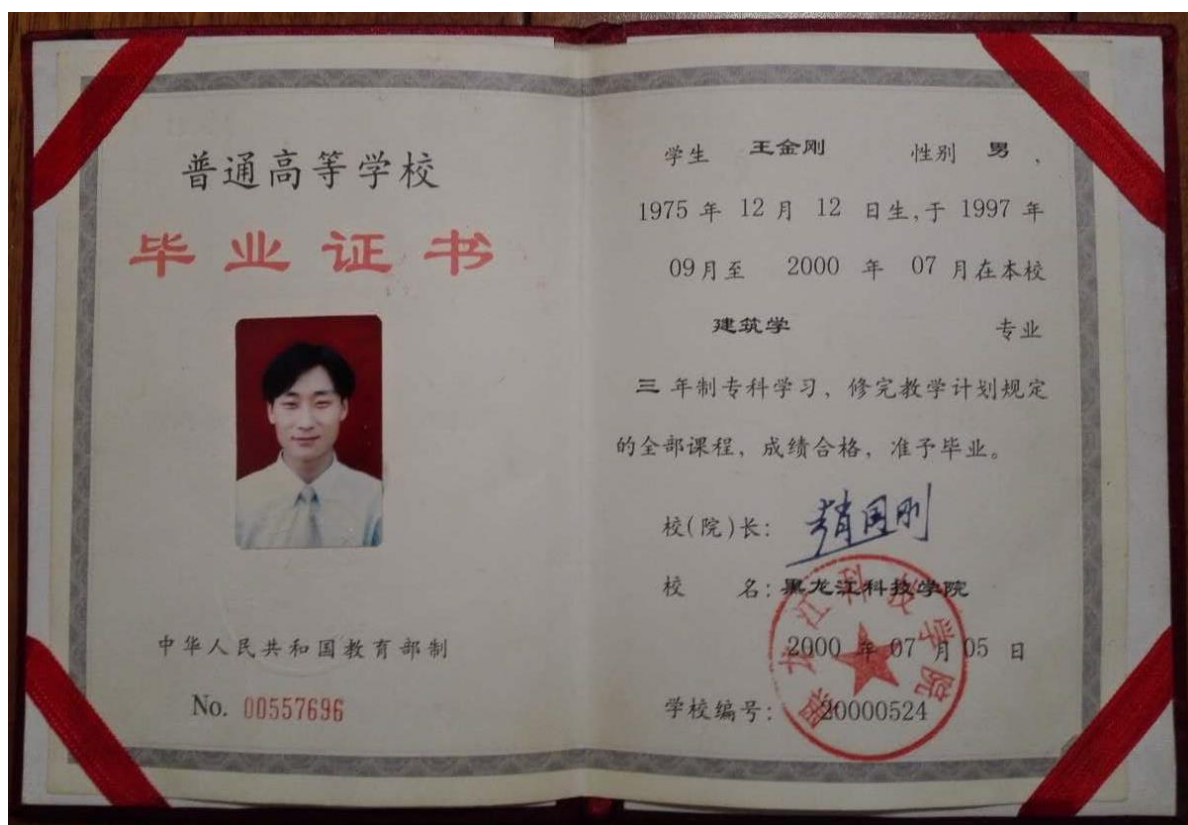 普通高等学校
毕业证书
中华人民共和国教育部制
No. 00557696
学生 王金刚 性别 男 ,
1975 年 12 月 12 日生,于 1997 年
09月至 2000 年 07 月在本校
建筑学 专业
三 年制专科学习，修完教学计划规定
的全部课程，成绩合格，准予毕业。
校(院)长: 赵国刚
校 名: 黑龙江科技学院
2000 年 07 月 05 日
学校编号: 20000524
黑龙江科技学院